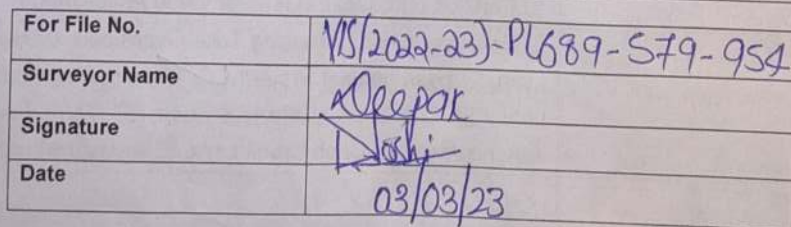 For File No. VIS(2022-23)-PL689-579-954
Surveyor Name Deepak
Signature Joshi
Date 03/03/23